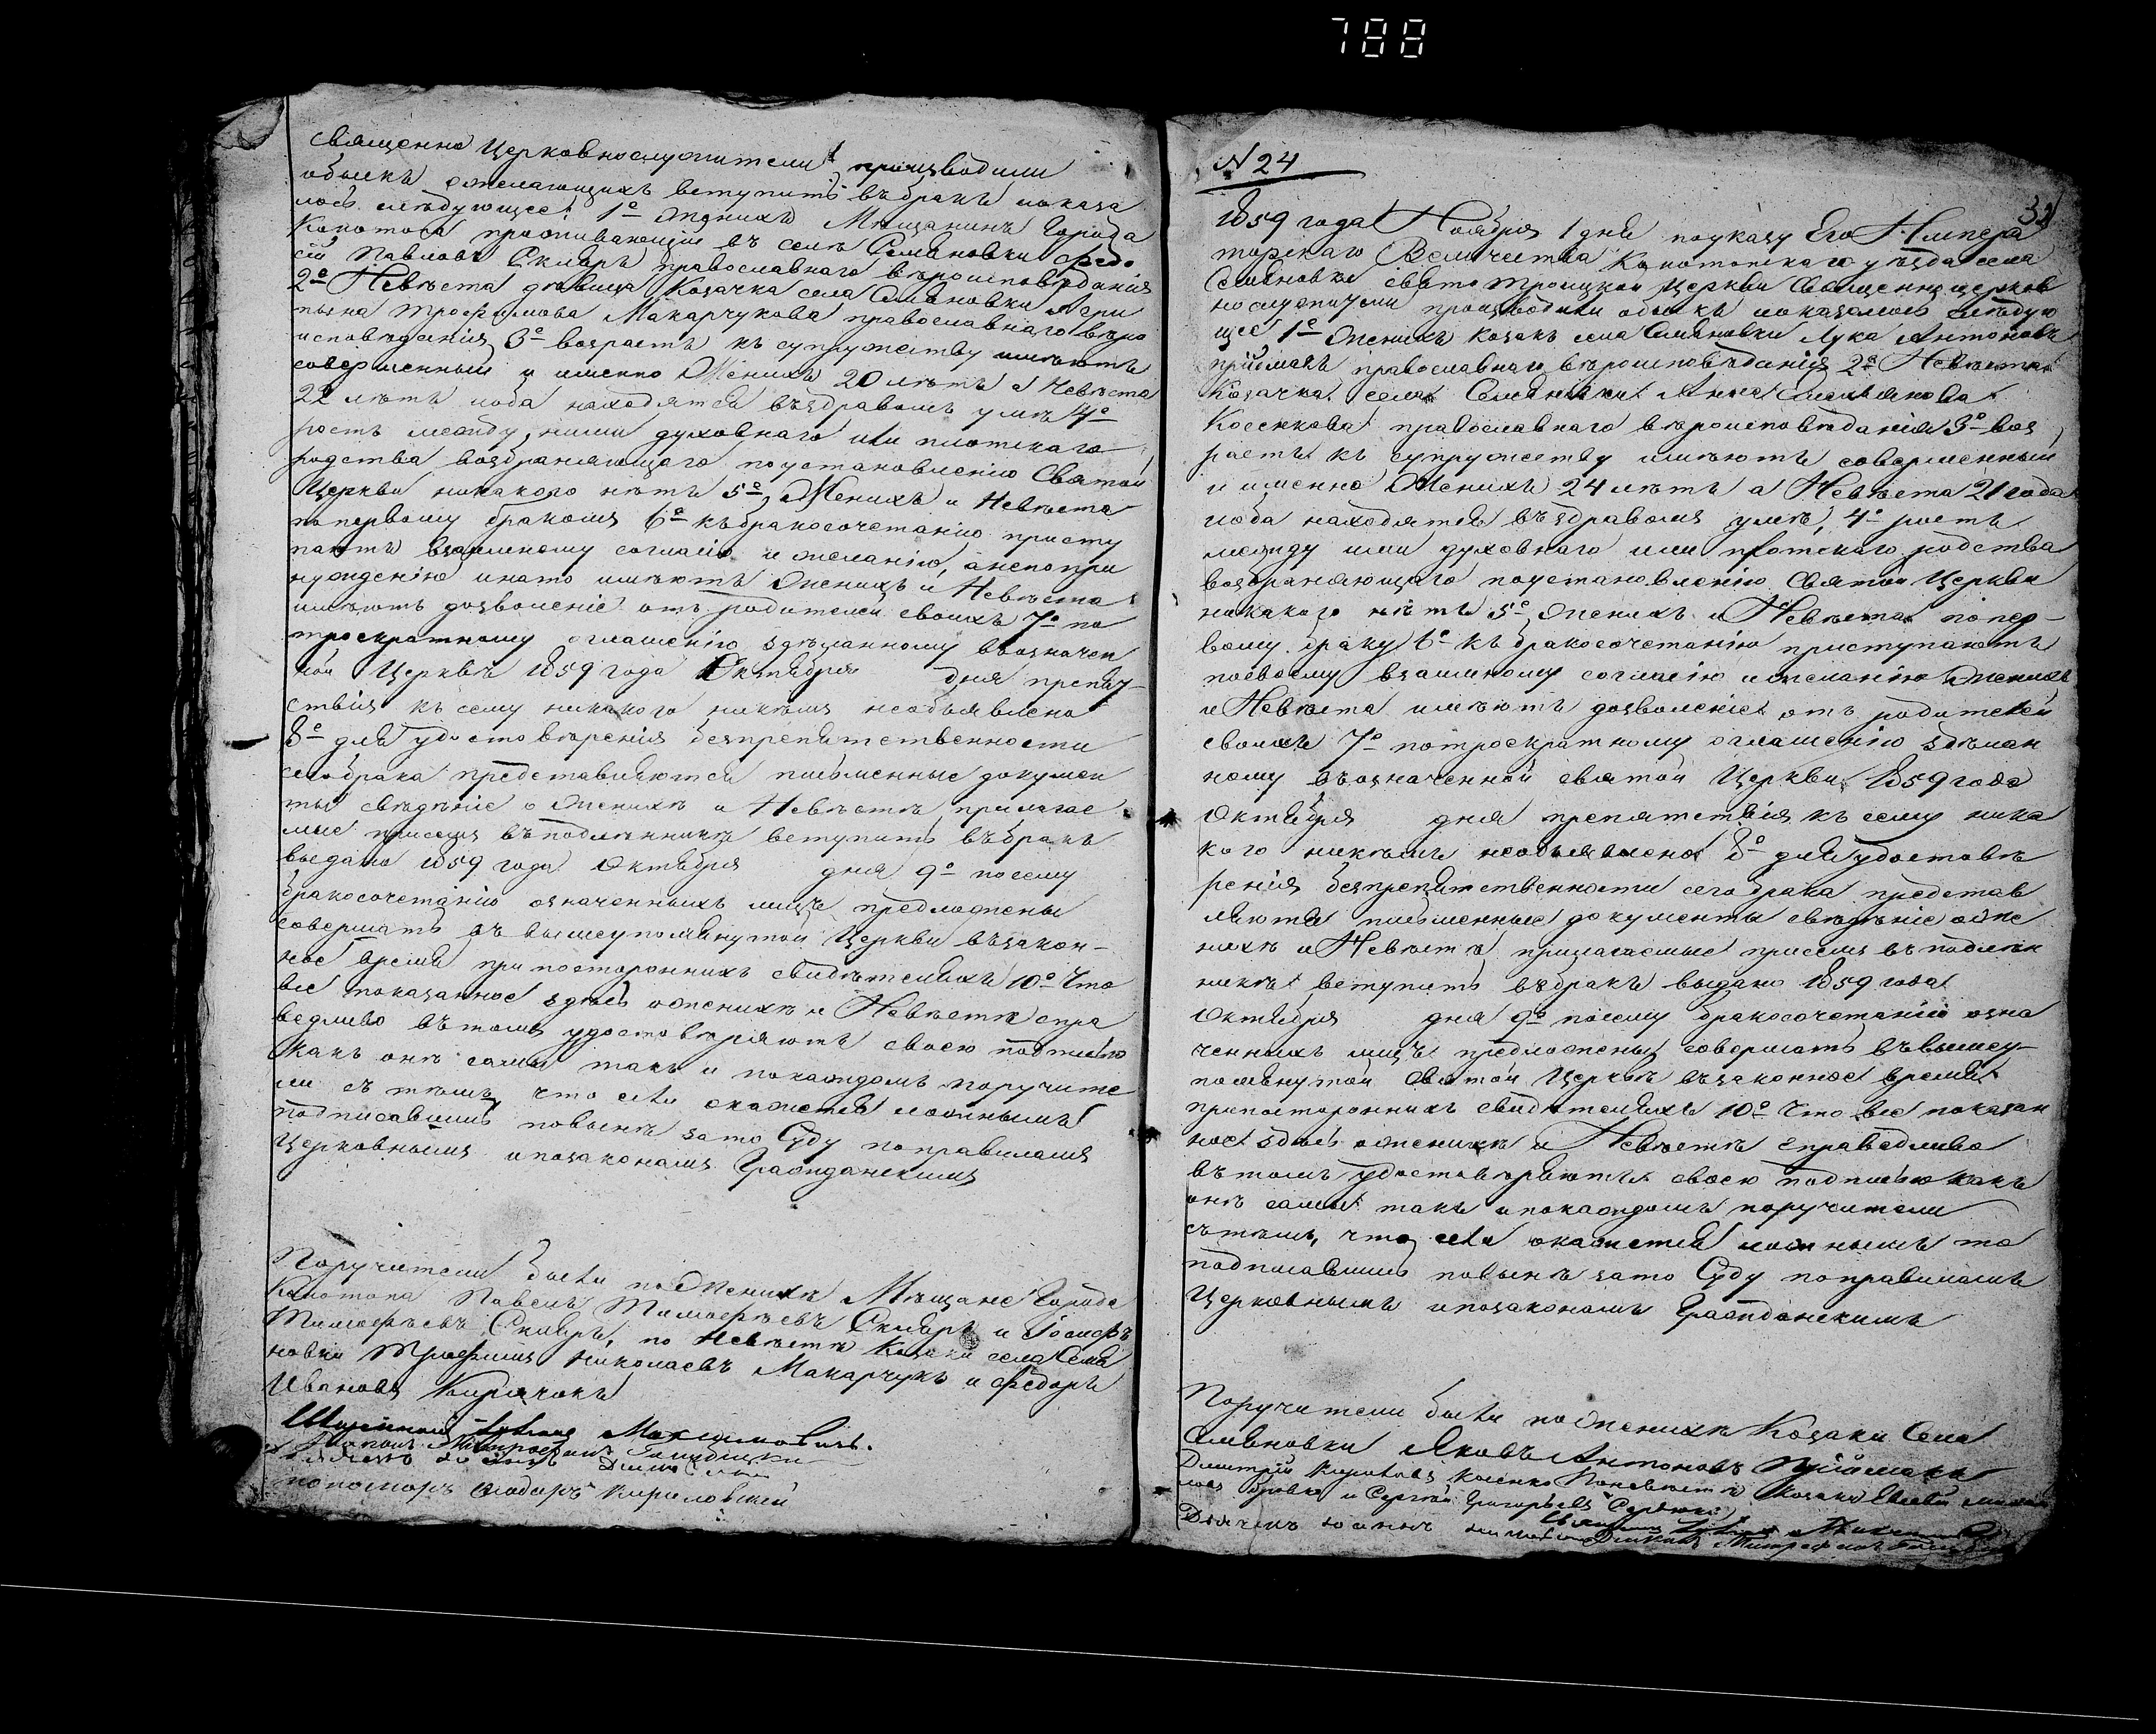 788
священно Церковнослужители производили
обыскъ о желающихъ вступить въ бракъ и оказа
лось следующее: 1е Женихъ Мещанинъ Города
Конотопа проживающій въ селе Семяновки Федо
сій Павловъ Скляръ православнаго вероисповеданія
2е Невѣста девица Козачка села Семяновки
Трофимова Макарчукова православнаго веро
исповеданія 3е возрастъ къ супружеству имѣютъ
совершенный и именно Женихъ 20 лѣтъ а Невѣста
22 лѣтъ и оба находятся въ здравомъ умѣ 4е
ростъ между ними духовнаго или плотскаго
родства возбраняющаго по установленію Святой
Церкви никакого нѣтъ 5е Женихъ и Невѣста
по первому бракомъ 6е къ бракосочетанію присту
паютъ взаимному согласію и желанію, а не по при
нужденію и на то имѣютъ Женихъ и Невѣста
имѣютъ дозволеніе отъ родителей своихъ 7е по
троекратному оглашенію здѣланному въ означен
ной Церквѣ 1859 года Октября дня препят
ствія къ сему никакого никѣмъ необъявлено
8е для удостовѣренія безпрепятственности
сего брака представляются письменные докумен
ты свѣдѣніе о Женихѣ и Невѣстѣ, прилагае
мые при семъ въ подлѣнникѣ вступить въ бракъ
выдано 1859 года Октября дня 9е посему
бракосочетанію означенныхъ лицъ предложены
совершать въ вышеупомянутой Церкви въ закон-
ное время при постороннихъ свидѣтеляхъ 10е Что
все показанное здѣсь о женихѣ и Невѣстѣ спра
ведливо въ томъ удостовѣряютъ своею подписью
какъ онѣ сами такъ и по каждомъ поручите
ли съ тѣмъ, что если окажется ложнымъ
подписавшись повынѣ за то Суду по правиламъ
Церковнымъ и по законамъ Гражданскимъ
Поручители были по Женихѣ Мѣщане Города
Конотопа Павелъ Тимофѣевъ Скляръ и Іосифъ
Тимофѣевъ Скляръ, по Невѣстѣ Козаки села Семя
новки Трофимъ Николаевъ Макарчукъ и Федоръ
Ивановъ Кирячокъ
Максимовичъ.
Митрофанъ
пономарь Федоръ Кириловскій
N 24
32
1859 года Ноября 1 дня по указу Его Импера
торскаго Величества Конотопскаго уѣзда села
Семяновки Свято Троицкой Церкви Священно церков
нослужители производили обыскъ и оказалось слѣдую
щее, 1е Женихъ Козакъ села Семяновки Лука Антоновъ
Пріймакъ православнаго вѣроисповѣданія 2е Невѣста
Козачка села Семяновки Анна Емельянова
Косенкова православнаго вѣроисповѣданія 3е воз
растъ къ супружеству имѣютъ совершенный
и именно Женихъ 24 лѣтъ а Невѣста 21 года
и оба находятся въ здравомъ умѣ, 4е ростъ
между ими духовнаго или плотскаго родства
возбраняющаго по установленію Святой Церкви
никакого нѣтъ 5е Женихъ и Невѣста по пер-
вому браку 6е къ бракосочетанію приступаютъ
по своему взаимному согласію и желанію Женихъ
и Невѣста имѣютъ дозволеніе отъ родителей
своихъ 7е по троекратному оглашенію здѣлан
ному въ означенной святой Церкви 1859 года
Октября дня препятствія къ сему ника
кого никѣмъ необъявлено 8е для удостовѣ
ренія безпрепятственности сего брака представ
ляются письменные документы свѣдѣніе о Же
нихѣ и Невѣстѣ, прилагаемые при семъ въ подлѣн
никѣ вступить въ бракъ выдано 1859 года
Октября дня 9е посему бракосочетанію озна
ченныхъ лицъ предложены совершать въ вышеу-
помянутой Святой Церквѣ въ законное время
при постороннихъ свидѣтеляхъ 10е Что все показан
ное здѣсь о женихѣ и Невѣстѣ справедливо
въ томъ удостовѣряютъ своею подписью какъ
онѣ сами такъ и по каждомъ поручители
съ тѣмъ, что если окажется ложнымъ то
подписавшись повынѣ за то Суду по правиламъ
Церковнымъ и по законамъ Гражданскимъ
Поручители были по Женихѣ Козаки Села
Семяновки Яковъ Антоновъ Пріймакъ
Дмитрій Косенко по невѣстѣ Козаки Евсей
и Сергій Григорьевъ Сердюкъ
Дьячекъ